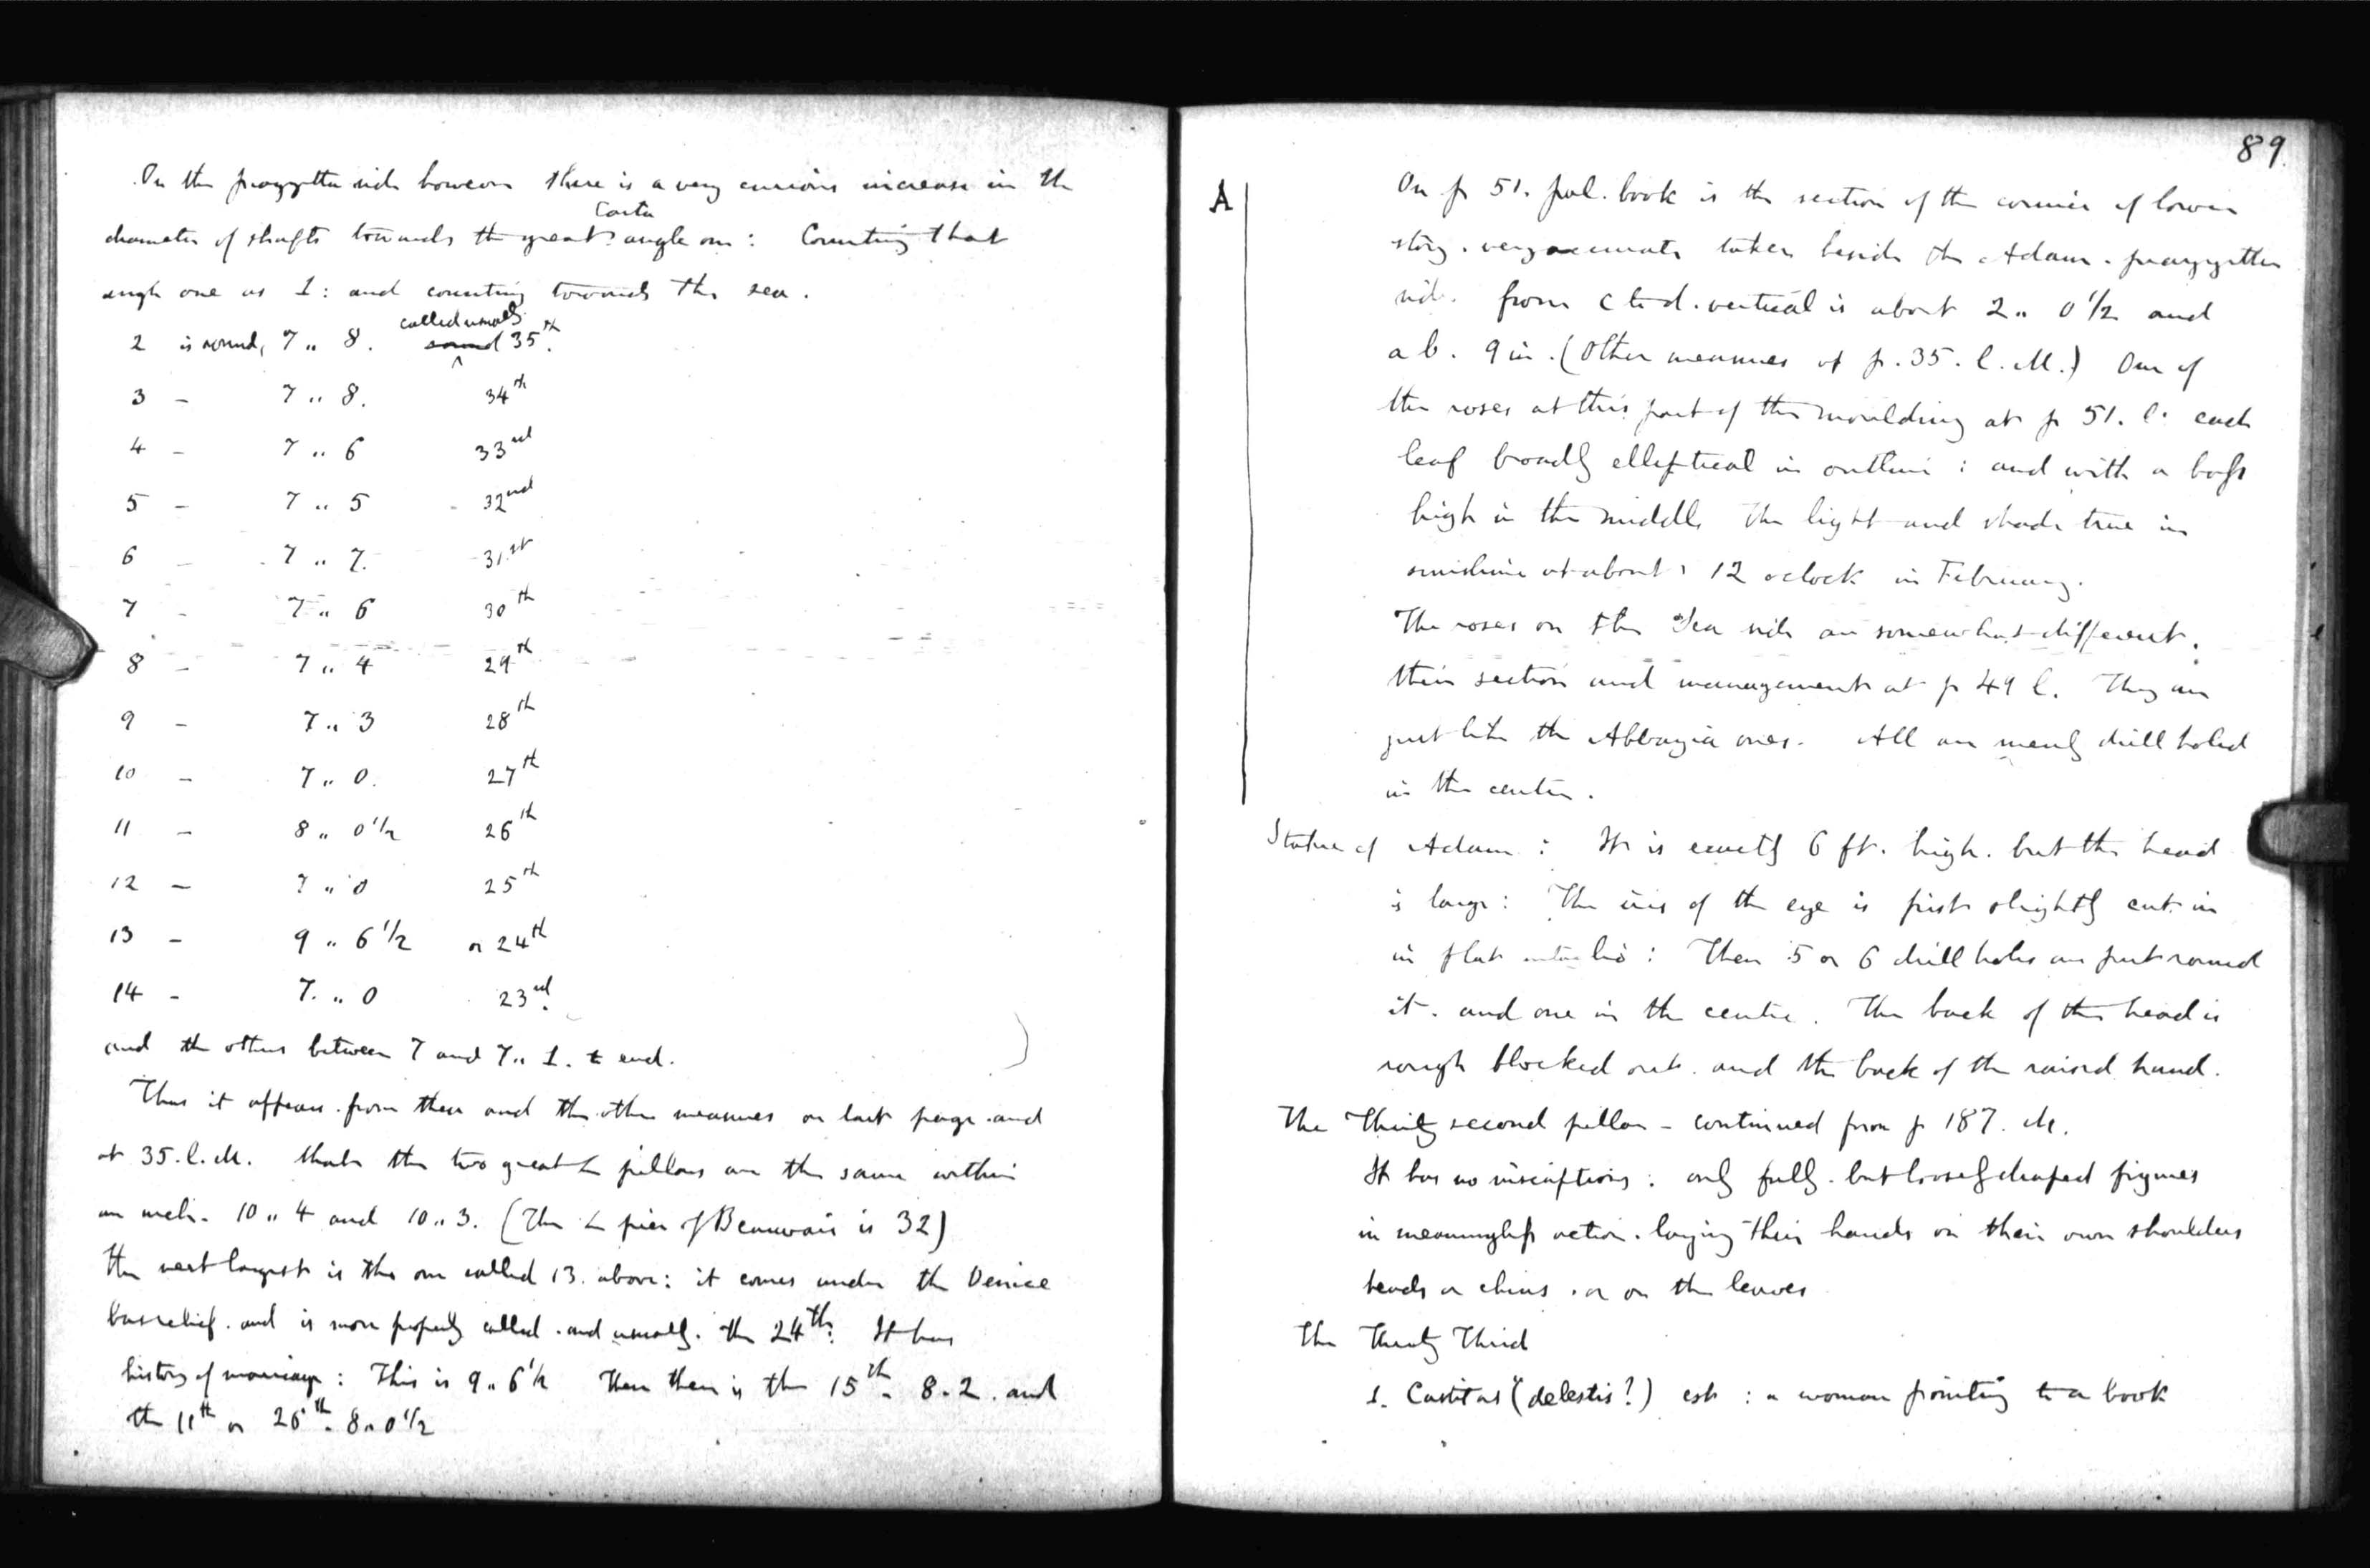 On the piazzetta side however there is a very curious increase in the
Carta
diameter of shafts towards the great angle one: Counting that
angle one as 1: and counting towards the sea.
2 is round, 7 " 8. called usually 35th.
3 - 7 " 8. 34th
4 - 7 " 6 33rd
5 - 7 " 5 32nd
6 - 7 " 7. 31st
7 - 7 " 6 30th
8 - 7 " 4 29th
9 - 7 " 3 28th
10 - 7 " 0. 27th
11 - 8 " 0 1/2 26th
12 - 7 " 0 25th
13 - 9 " 6 1/2 or 24th
14 - 7. " 0 23rd.
and the others between 7 and 7 " 1. to end.
Thus it appears from these and the other measures on last page and
at 35. l. M. that the two great L pillars are the same within
an inch. 10 " 4 and 10 " 3. (The L pier of Beauvais is 32)
the next largest is the one called 13. above: it comes under the Venice
bas relief. and is more properly called. and usually. the 24th: It has
history of marriage: This is 9 " 6 1/2 Then there is the 15th. 8 - 2. and
the 11th or 26th. 8 " 0 1/2
89.
A
On p 51. pal. book is the section of the cornice of lower
story. very accurate taken beside the Adam. piazzetta
side. from c to d. vertical is about 2 " 0 1/2 and
a b. 9 in. (Other measures at p. 35. l. M.) One of
the roses at this part of the moulding at p 51. l. each
leaf broadly elliptical in outline: and with a boss
high in the middle the light and shade true in
sunshine at about 12 oclock in February.
The roses on the Sea side are somewhat different.
their section and management at p 49 l. They are
just like the Abbazia ones. All are merely drill holed
in the centre.
Statue of Adam: It is exactly 6 ft. high. but the head
is large: The iris of the eye is first slightly cut in
in flat intaglio: Then 5 or 6 drill holes are put round
it. and one in the centre. The back of the head is
rough blocked out. and the back of the raised hand.
The Thirty second pillar - continued from p 187. M.
It has no inscriptions: only fully. but loosely draped figures
in meaningless action. laying their hands on their own shoulders
heads or chins. or on the leaves
The Thirty Third
1. Castitas "(delestis?) est: a woman pointing to a book